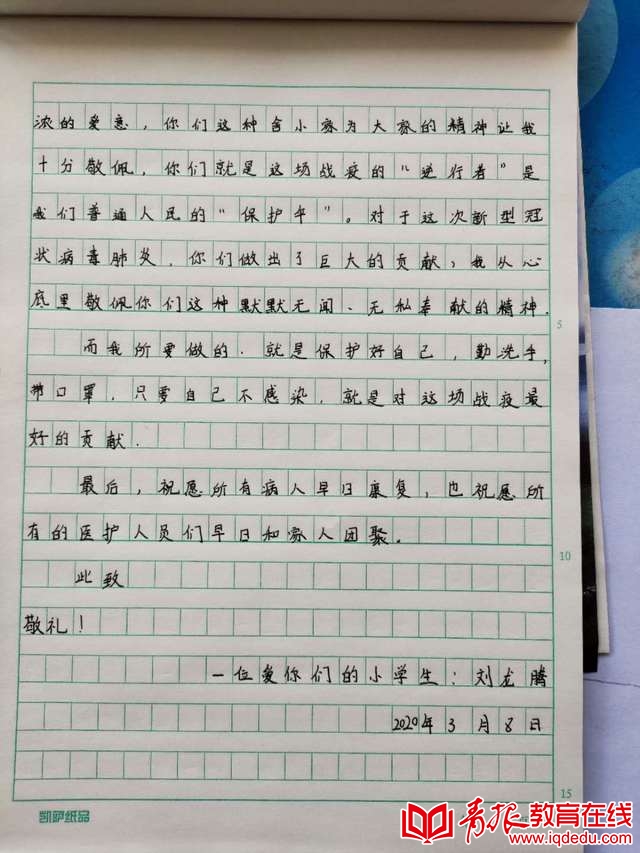 浓的爱意，你们这种舍小家为大家的精神让我
十分敬佩，你们就是这场战疫的“逆行者”是
我们普通人民的“保护伞”。对于这次新型冠
状病毒肺炎，你们做出了巨大的贡献，我从心
底里敬佩你们这种默默无闻、无私奉献的精神.
5
而我所要做的.就是保护好自己，勤洗手,
带口罩，只要自己不感染，就是对这场战疫最
好的贡献.
最后，祝愿所有病人早日康复，也祝愿所
有的医护人员们早日和家人团聚。
10
此致
敬礼！
一位爱你们的小学生：刘龙腾
2020年3月8日
15
凯萨纸品
青报教育在线
www.iqdedu.com